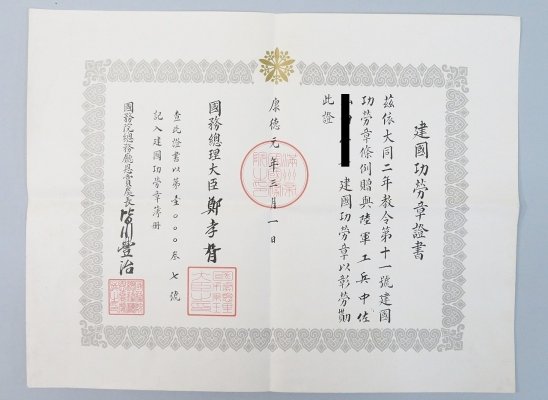 建國功勞章證書
茲依大同二年教令第十一號建國
功勞章條例贈與陸軍工兵中佐
建國功勞章以彰勞勛
此證
康德元年三月一日
國務總理大臣 鄭孝胥
查此證書以第壹〇〇〇叁七號
記入建國功勞章簿冊
國務院總務廳恩賞處長 皆川豐治